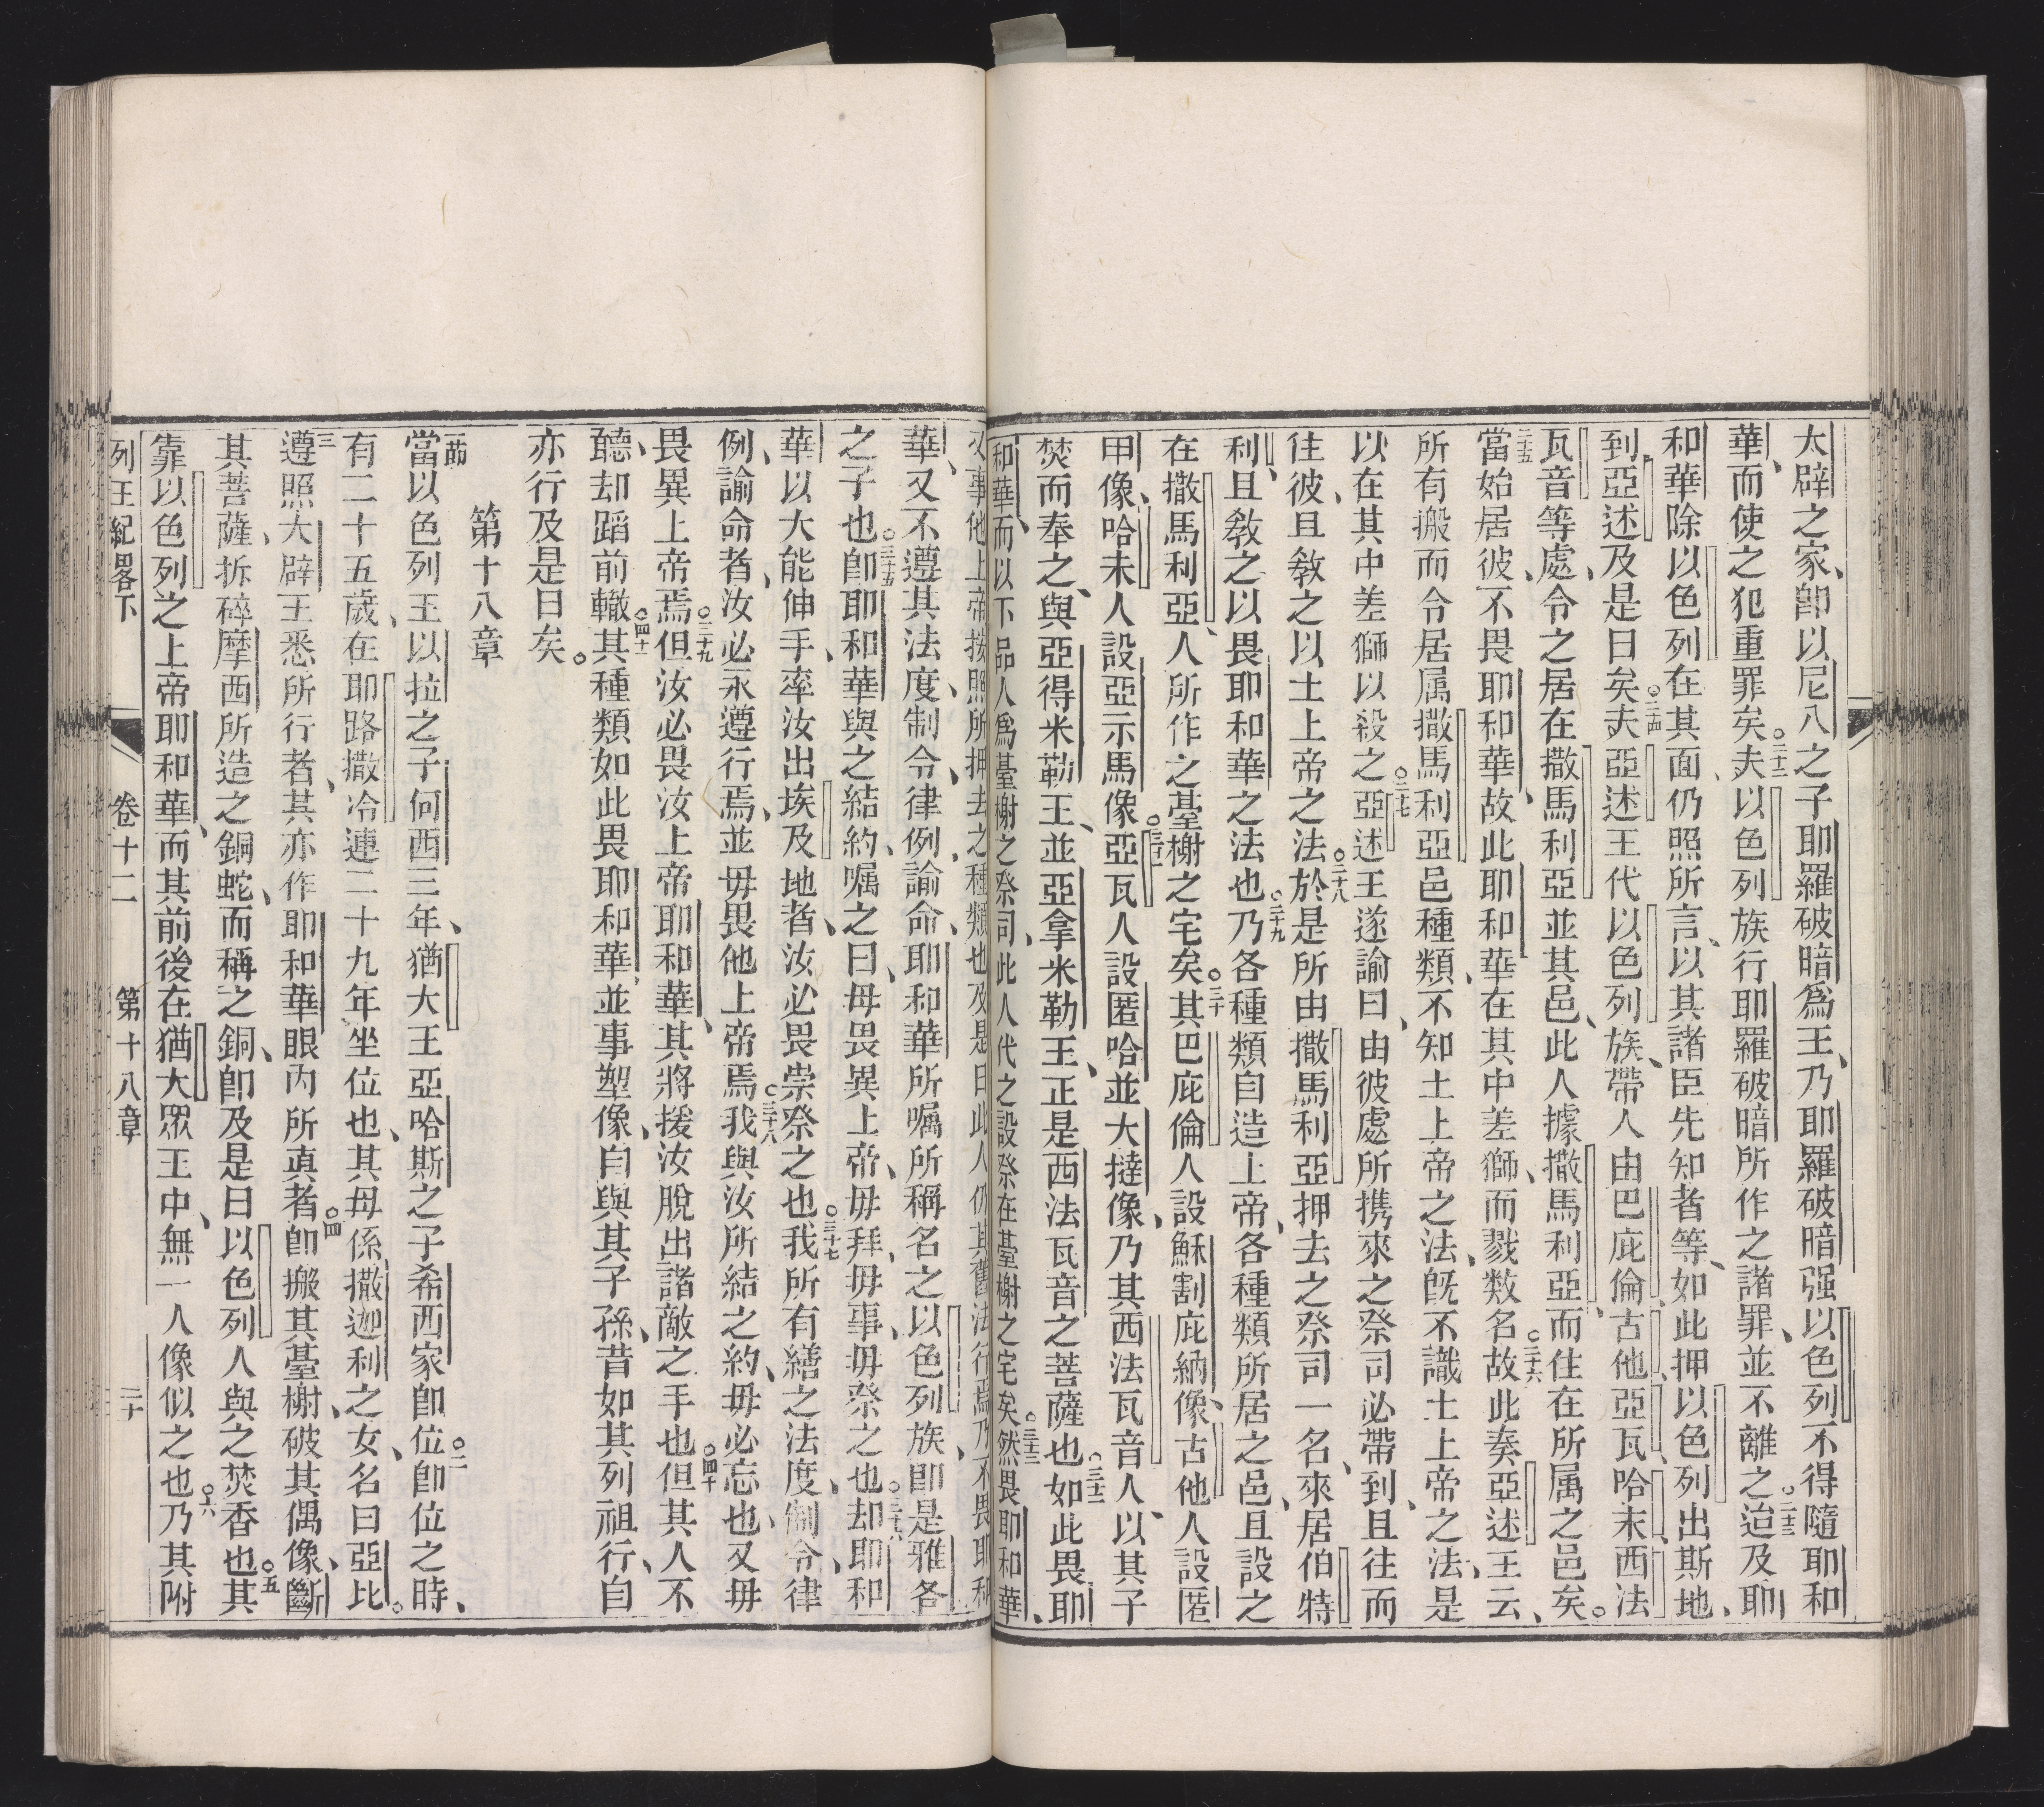 太辟之家、卽以尼八之子耶羅破暗爲王、乃耶羅破暗强以色列不得隨耶和
華、而使之犯重罪矣○二十二夫以色列族行耶羅破暗所作之諸罪、並不離之○二十三迨及耶
和華除以色列在其面、仍照所言、以其諸臣先知者等、如此押以色列出斯地、
到亞述及是日矣○二十四夫亞述王代以色列族、帶人由巴庇倫、古他、亞瓦、哈末、西法
瓦音等處、令之居在撒馬利亞並其邑、此人據撒馬利亞、而住在所属之邑矣。
二十五當始居彼、不畏耶和華、故此耶和華在其中差獅、而戮数名○二十六故此奏亞述王云、
所有搬而令居属撒馬利亞邑種類、不知土上帝之法、旣不識土上帝之法、是
以在其中差獅以殺之○二十七亞述王遂諭曰、由彼處所携來之祭司必帶到、且往而
住彼、且敎之以土上帝之法○二十八於是所由撒馬利亞押去之祭司一名、來居伯特
利、且敎之以畏耶和華之法也○二十九乃各種類自造上帝、各種類所居之邑、且設之
在撒馬利亞、人所作之臺榭之宅矣○三十其巴庇倫人設穌割庇納像、古他人設匿
甲像、哈末人設亞示馬像○三十一亞瓦人設匿哈並大撻像、乃其西法瓦音人、以其子
焚而奉之、與亞得米勒王、並亞拿米勒王、正是西法瓦音之菩薩也○三十二如此畏耶
和華、而以下品人爲臺榭之祭司、此人代之設祭在臺榭之宅矣○三十三然畏耶和華、
又事他上帝按照所押去之種類也及是日此人仍其舊法行焉乃不畏耶和
華、又不遵其法度、制令、律例、諭命、耶和華所嘱所稱名之以色列族、卽是雅各
之子也○三十五卽耶和華與之結約、嘱之曰、毋畏異上帝、毋拜、毋事、毋祭之也○三十六却耶和
華以大能伸手、率汝出埃及地者、汝必畏崇祭之也○三十七我所有繕之法度、制令、律
例、諭命者、汝必永遵行焉、並毋畏他上帝焉○三十八我與汝所結之約、毋必忘也、又毋
畏異上帝焉○三十九但汝必畏汝上帝耶和華、其將援汝脫出諸敵之手也○四十但其人不
聽、却蹈前轍○四十一其種類如此畏耶和華、並事塑像、自與其子孫、昔如其列祖行、自
亦行及是日矣。
第十八章
一節當以色列王以拉之子何西三年、猶大王亞哈斯之子希西家卽位○二卽位之時、
有二十五歲、在耶路撒冷連二十九年坐位也、其母係撒迦利之女、名曰亞比。
三遵照大辟王悉所行者、其亦作耶和華眼內所眞者○四卽搬其臺榭、破其偶像、斷
其菩薩、拆碎摩西所造之銅蛇、而稱之銅、卽及是日以色列人與之焚香也○五其
靠以色列之上帝耶和華、而其前後在猶大眾王中、無一人像似之也○六乃其附
列王紀畧下 卷十二 第十八章 二十